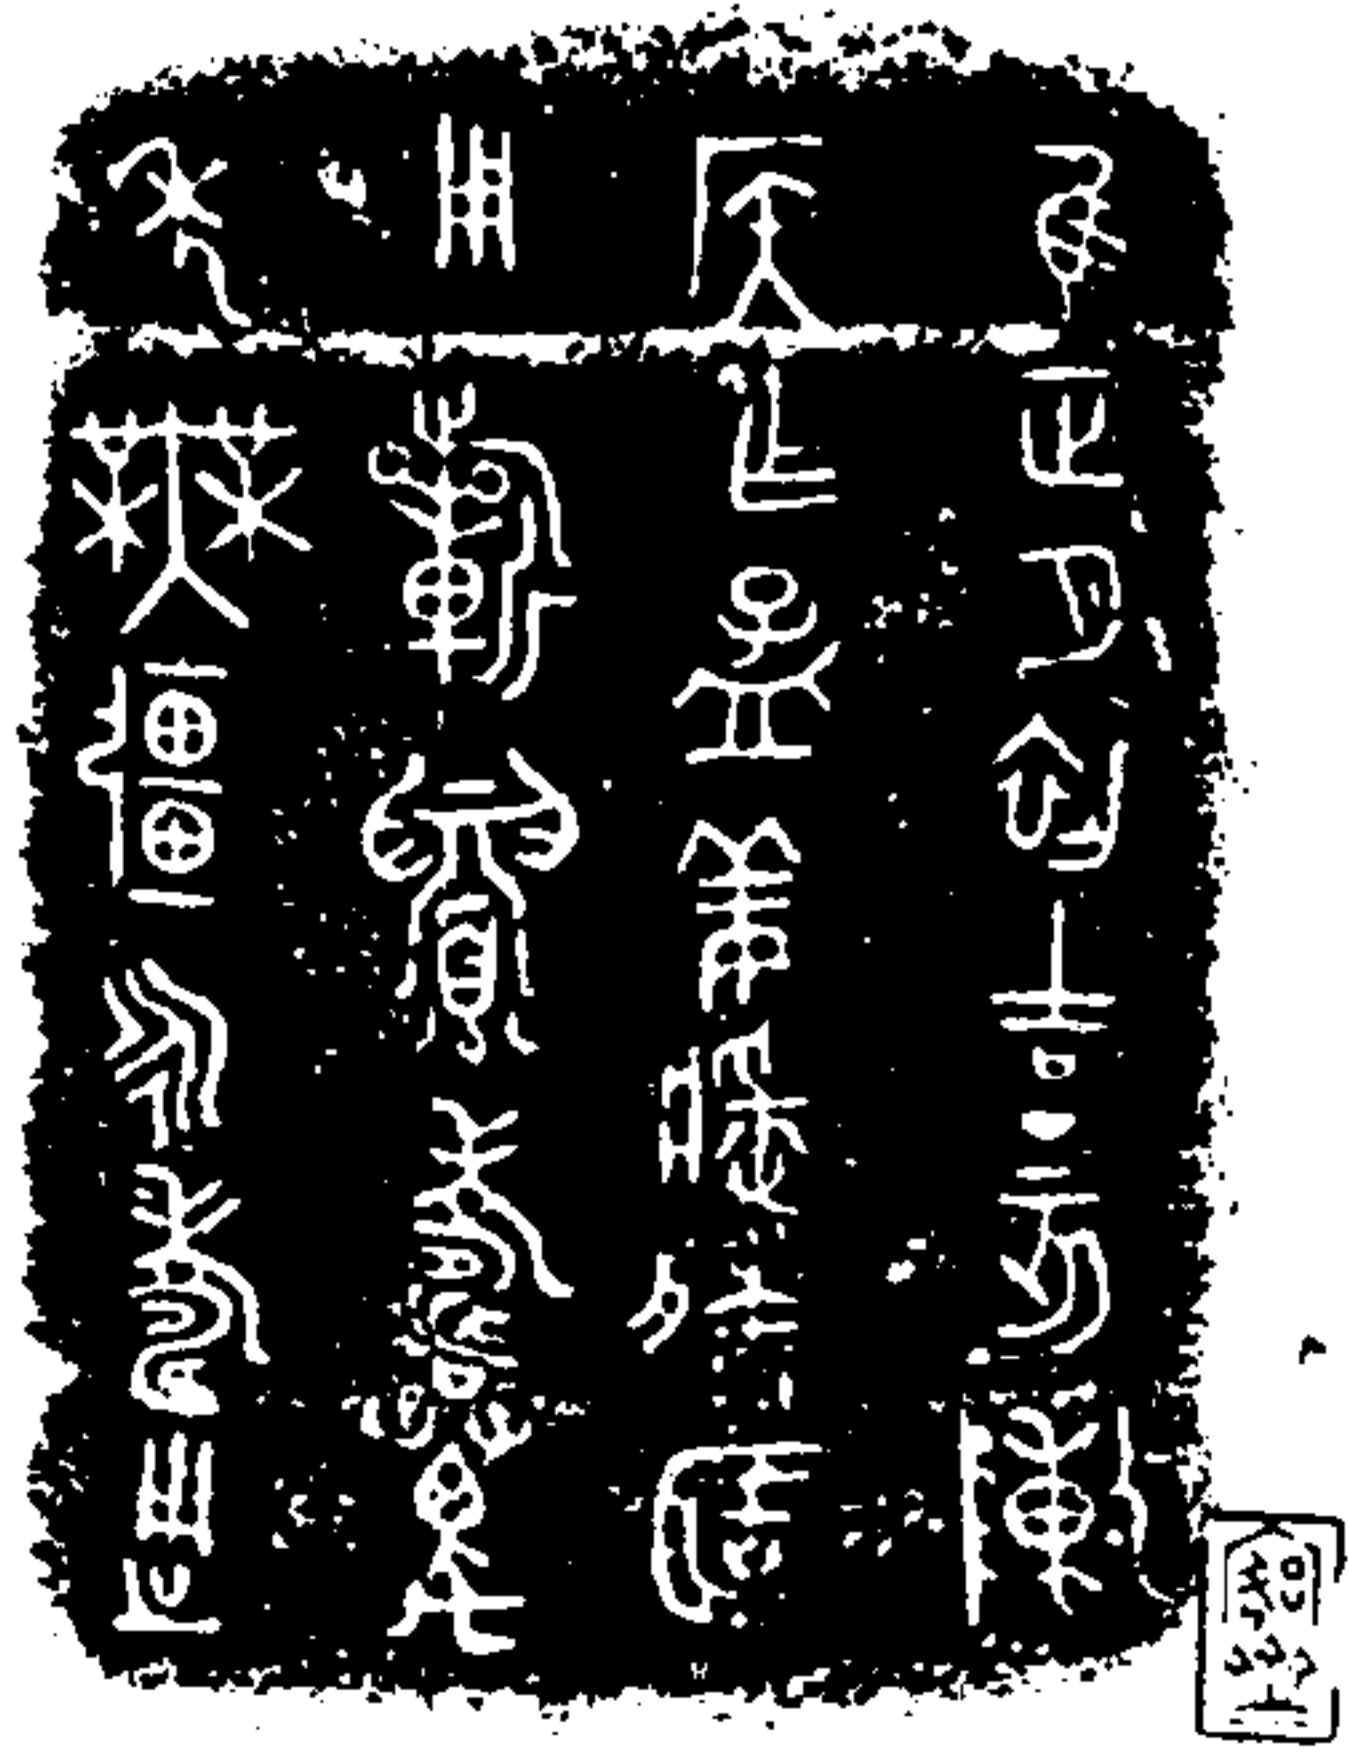 隹正月初吉丁亥陳
侯乍孟姜𦀚
用祈眉壽萬
年無疆永壽用之